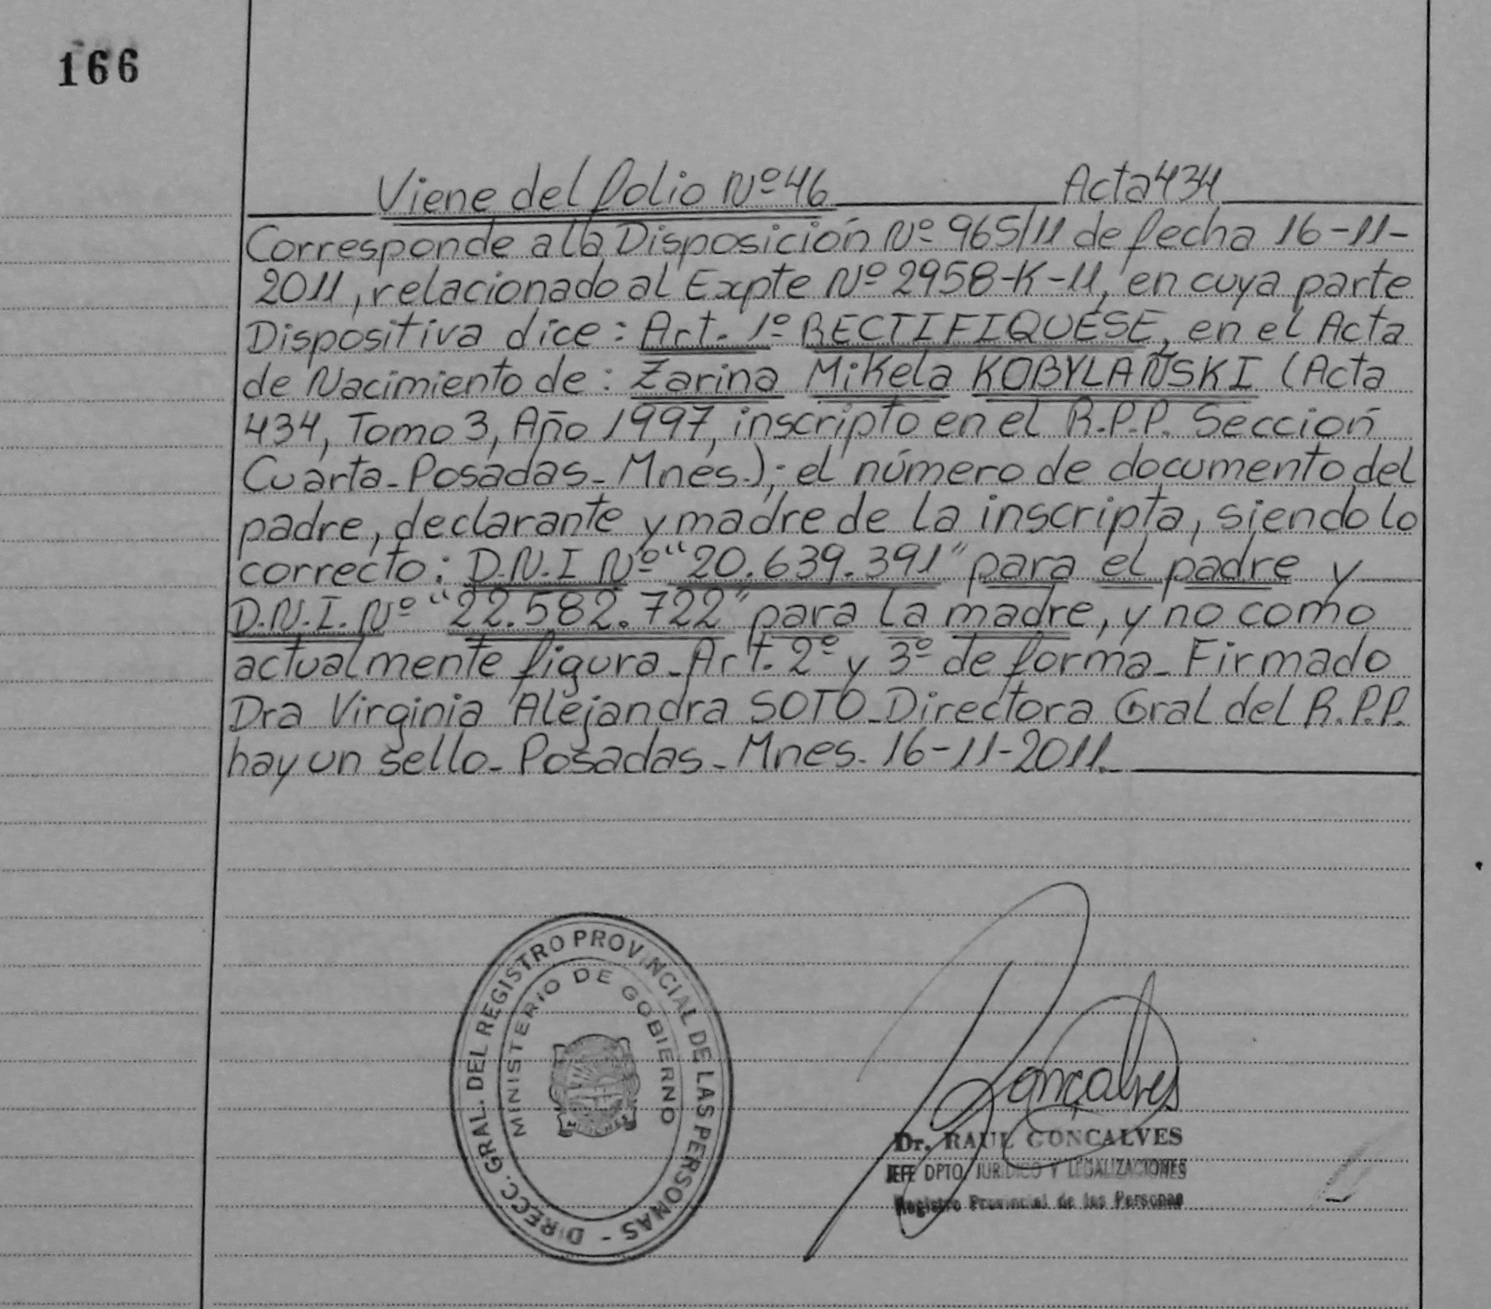 166
Viene del folio Nº 46 Acta 434
Corresponde a la Disposición Nº 965/11 de fecha 16-11-
2011, relacionado al Expte Nº 2958-K-11, en cuya parte
Dispositiva dice: Art. 1º RECTIFIQUESE, en el Acta
de Nacimiento de: Zarina Mikela KOBYLAÑSKI (Acta
434, Tomo 3, Año 1997, inscripto en el R.P.P. Sección
Cuarta-Posadas-Mnes.); el número de documento del
padre, declarante y madre de la inscripta, siendo lo
correcto: D.N.I Nº "20.639.391" para el padre y
D.N.I. Nº "22.582.722" para la madre, y no como
actualmente figura-Art. 2º y 3º de forma-Firmado
Dra Virginia Alejandra SOTO-Directora Gral del R.P.P.
hay un sello-Posadas-Mnes. 16-11-2011.
DIRECC. GRAL. DEL REGISTRO PROVINCIAL DE LAS PERSONAS -
MINISTERIO DE GOBIERNO
MISIONES
Gonçalves
Dr. RAUL GONCALVES
JEFE DPTO. JURIDICO Y LEGALIZACIONES
Registro Provincial de las Personas